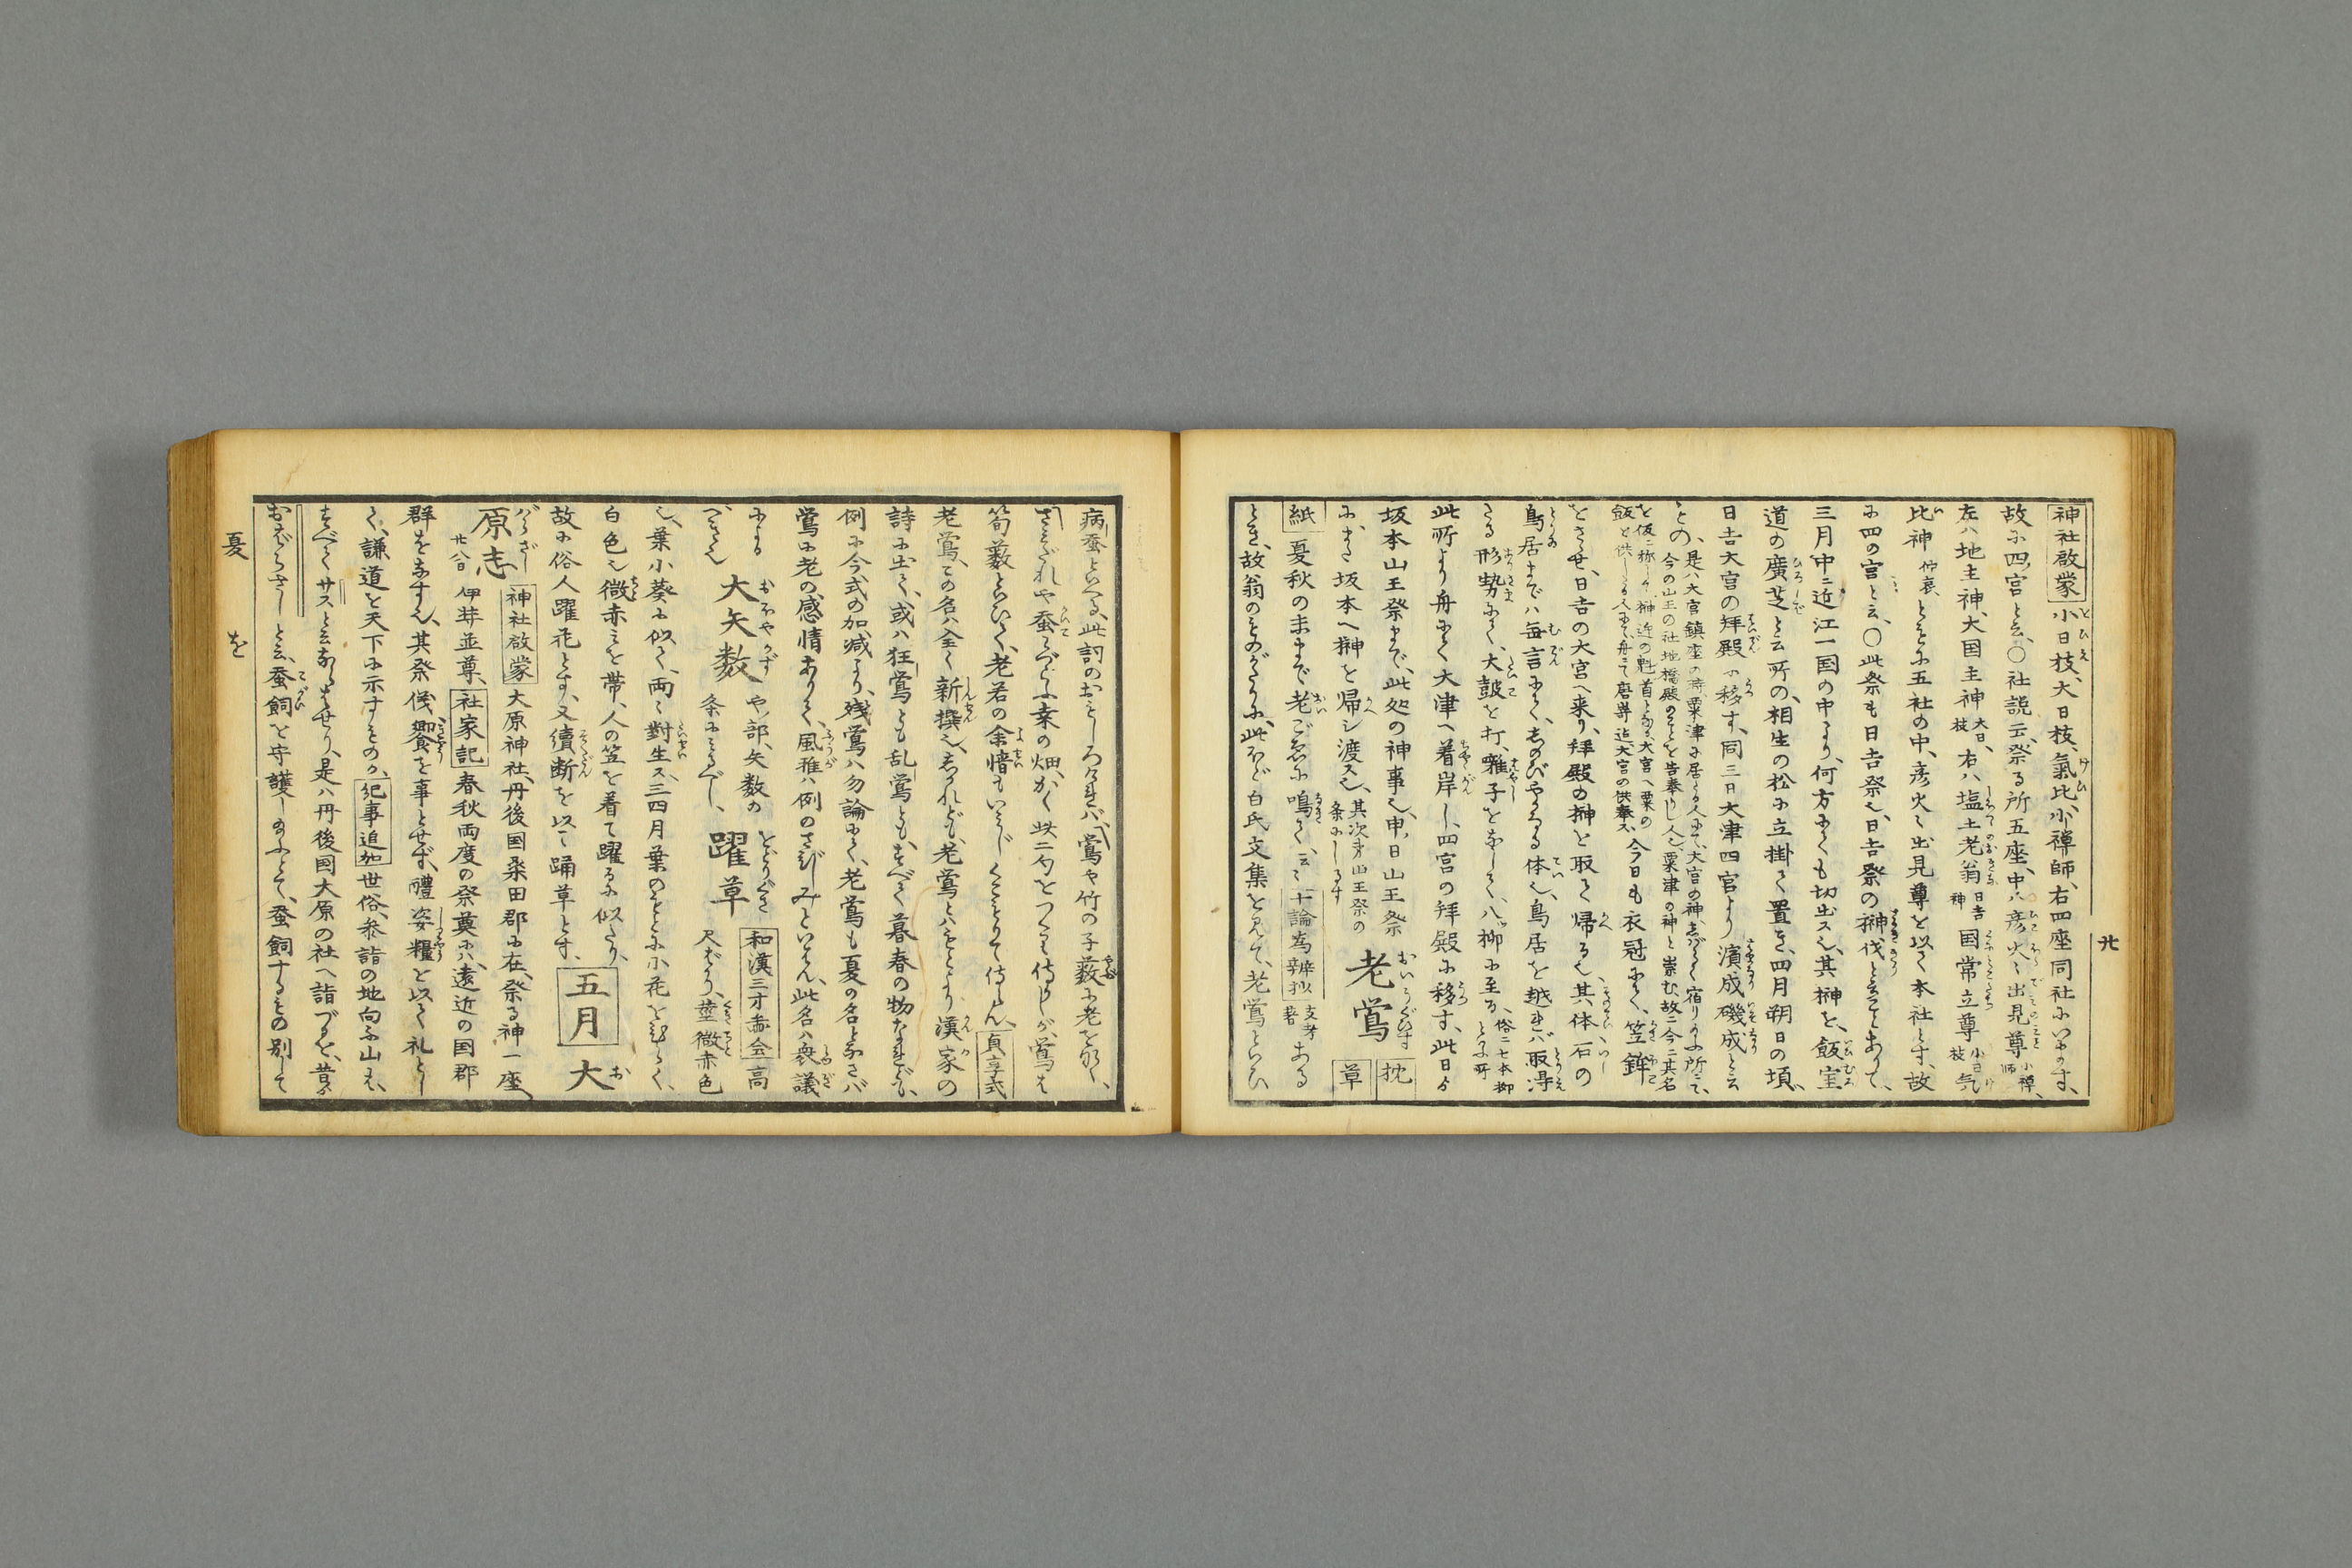 神社啟蒙 小日枝、大日枝、氣比、小禪師、右四座同社にいます、
故に四宮と云、〇社説云、祭る所五座、中ハ彦火々出見尊 小禅師、
左ハ地主神、大国主神 大日枝、右ハ塩土老翁 日吉神 国常立尊 小日枝 気
比神 仲哀、とをに五社の中、彦火々出見尊を以て本社とす、故
に四の宮と云、〇此祭も日吉祭也、日吉祭の榊伐と云てとありて、
三月中ニ近江一国の中より、何方にても切出ス也、其榊を、飯室
道の廣芝と云所の、相生の松に立掛て置を、四月朔日の頃
日吉大宮の拜殿に移す、同三日大津四宮より濱成磯成と云
もの、是ハ大宮鎮座の時粟津に居る人にて、大宮の神、
今の山王の社地橋殿のもとを告奉りし人也、粟津の神と崇む、故ニ今ニ其名
飯と供しる人にて、舟にて唐崎迄大宮の供奉ス、今日も衣冠にて、笠鉾
をさゝせ、日吉の大宮へ来り、拜殿の榊を取て帰る也、其体石の
鳥居までハ毎言にて、しのびやかなる体也、鳥居を越れバ取得
たる形勢にて、大皷を打、囃子をなして、八柳に至る、俗ニ七本柳と云所
此所より舟にて大津へ着岸し、四宮の拜殿に移す、此日より
坂本山王祭まで、此処の神事也、申ノ日山王祭
にまた坂本へ榊を帰シ渡ス也、其次第山王祭の条にしるす 老鶯 枕草
紙 夏秋の末まで老ごゑに鳴て、云々 十論為辨抄 支考著 ある
とき、故翁のものがたりに、此ほど白氏文集を見て、老鶯といひ
廿
病蚕といへる、此詞のおもしろければ、鶯や竹の子藪に老を鳴、
さみだれや蚕わづらふ桑の畑、かく此二句をつくり侍りしが、鶯は
筍藪といひて、老若の余情もいみじくこもりて侍らん、貞享式
老鶯、この名ハ全く新撰也、しかれども、老鶯とハもとより漢家の
詩に出て、或ハ狂鶯とも乱鶯とも、すべて暮春の物なれども、
例に今式の加減より、残鶯ハ勿論にて、老鶯も夏の名となさバ
鶯に老の感情ありて、風雅ハ例のさびしみといはん、此名ハ衆議
による 大矢数 や部、矢数の条にみるべし、 躍草 和漢三才啚会 高
尺ばかり、莖微赤色
也、葉小葵に似て、両々對生ス、三四月葉のもとに小花をひらく、
白色也、微赤ミを帯、人の笠を着て躍るに似たり、
故に俗人躍花とす、又續断を以て踊草とす、 五月 大
原志 神社啟蒙 大原神社、丹後国桒田郡に在、祭る神一座
廿八日 伊弉並尊、社家記 春秋両度の祭奠に、遠近の国郡
群をなす也、其祭儀饗を事とせず、禮姿糧を以て礼とし
て、謙道を天下に示すものか、紀事追加 世俗、参詣の地向ふ山は、
すべてサスと云ならはせり、是ハ丹後国大原の社へ詣づるを、昔より
おばらざしと云、蚕飼を守護し給ふとて、蚕飼するもの別して
夏 を